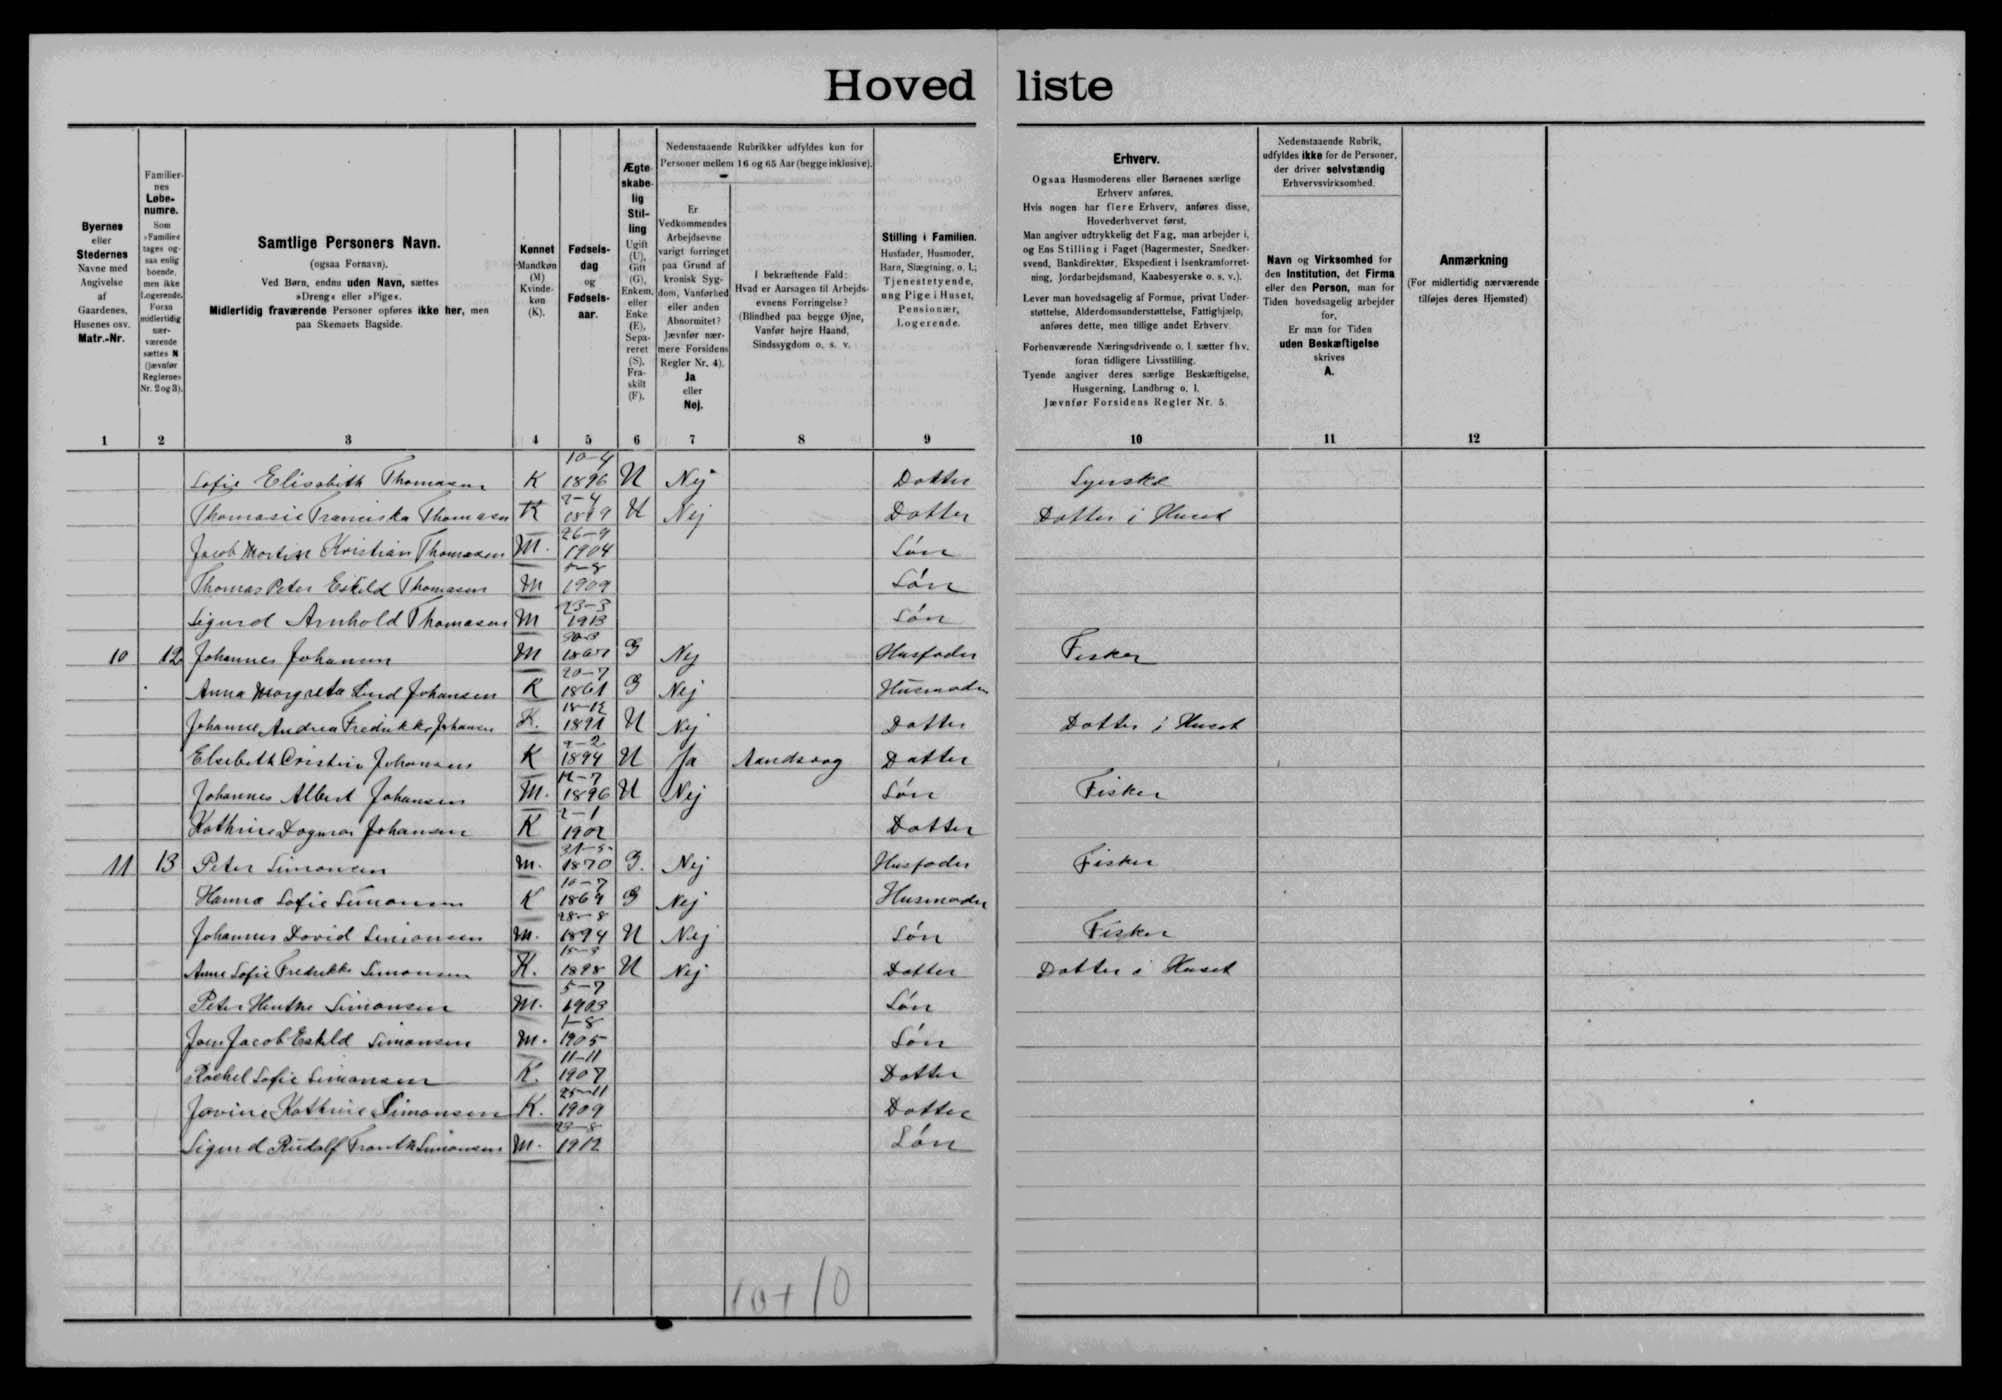 Hovedliste
Byernes eller Stedernes Navne med Angivelse af Gaardenes, Husenes osv. Matr.-Nr.
Familiernes Løbenumre. Som »Familie« tages ogsaa enlig boende, men ikke Logerende. Foran midlertidig nærværende sættes N (jævnfør Reglernes Nr. 2 og 3).
Samtlige Personers Navn. (ogsaa Fornavn). Ved Børn, endnu uden Navn, sættes »Dreng« eller »Pige«. Midlertidig fraværende Personer opføres ikke her, men paa Skemaets Bagside.
Kønnet Mandkøn (M) Kvindekøn (K).
Fødselsdag og Fødselsaar.
Ægteskabelig Stilling Ugift (U), Gift (G), Enkem. eller Enke (E), Separeret (S), Fraskilt (F).
Nedenstaaende Rubrikker udfyldes kun for Personer mellem 16 og 65 Aar (begge inklusive).
Er Vedkommendes Arbejdsevne varigt forringet paa Grund af kronisk Sygdom, Vanførhed eller anden Abnormitet? Jævnfør nærmere Forsidens Regler Nr. 4). Ja eller Nej.
I bekræftende Fald: Hvad er Aarsagen til Arbejdsevnens Forringelse? (Blindhed paa begge Øjne, Vanfør højre Haand, Sindssygdom o. s. v.
Stilling i Familien. Husfader, Husmoder, Barn, Slægtning, o. l.; Tjenestetyende, ung Pige i Huset, Pensionær, Logerende.
Erhverv.
Ogsaa Husmoderens eller Børnenes særlige Erhverv anføres.
Hvis nogen har flere Erhverv, anføres disse, Hovederhvervet først.
Man angiver udtrykkelig det Fag, man arbejder i, og Ens Stilling i Faget (Bagermester, Snedkersvend, Bankdirektør, Ekspedient i Isenkramforretning, Jordarbejdsmand, Kaabesyerske o. s. v.).
Lever man hovedsagelig af Formue, privat Understøttelse, Alderdomsunderstøttelse, Fattighjælp, anføres dette, men tillige andet Erhverv.
Forhenværende Næringsdrivende o. l. sætter fhv. foran tidligere Livsstilling.
Tyende angiver deres særlige Beskæftigelse, Husgerning, Landbrug o. l.
Jævnfør Forsidens Regler Nr. 5.
Nedenstaaende Rubrik, udfyldes ikke for de Personer, der driver selvstændig Erhvervsvirksomhed.
Navn og Virksomhed for den Institution, det Firma eller den Person, man for Tiden hovedsagelig arbejder for.
Er man for Tiden uden Beskæftigelse skrives A.
Anmærkning (For midlertidig nærværende tilføjes deres Hjemsted)
1 2 3 4 5 6 7 8 9 10 11 12
Sofie Elisabith Thomasen K 10-4 1896 U Nej Datter Syerske
Thomasie Franciska Thomasen K U Nej Datter Datter i Huset
Jacob Martin Kristian Thomasen M. 26-9 1904 Søn
Thomas Peter Eskild Thomasen M 1909 Søn
Sigurd Arnhold Thomasen M 23-3 1913 Søn
10 12 Johannes Johansen M G Nej Husfader Fisker
Anna Margreta Lind Johansen K 20-7 1861 G Nej Husmoder
Johanne Andrea Fredrikke Johansen K. 18-12 1891 U Nej Datter Datter i Huset
Elsebeth Cristine Johansen K 1894 U Ja Aandssvag Datter
Johannes Albert Johansen M. 1896 U Nej Søn Fisker
Kathrine Dagmar Johansen K 2-1 1902 Datter
11 13 Peter Simonsen M. 21-5 1870 G. Nej Husfader Fisker
Hanna Sofie Simonsen K 10-7 1864 G Nej Husmoder
Johannes David Simonsen M. 28-8 1894 U Nej Søn Fisker
Anne Sofie Fredrikke Simonsen K. 18-3 1898 U Nej Datter Datter i Huset
Peter Simonsen M. 5-7 1903 Søn
Joen Jacob Eskild Simonsen M. 1-8 1905 Søn
Rachel Sofie Simonsen K. 11-11 1907 Datter
Jovine Kathrine Simonsen K. 25-11 1909 Datter
Sigurd Rudolf Simonsen M. 1912 Søn
10+10